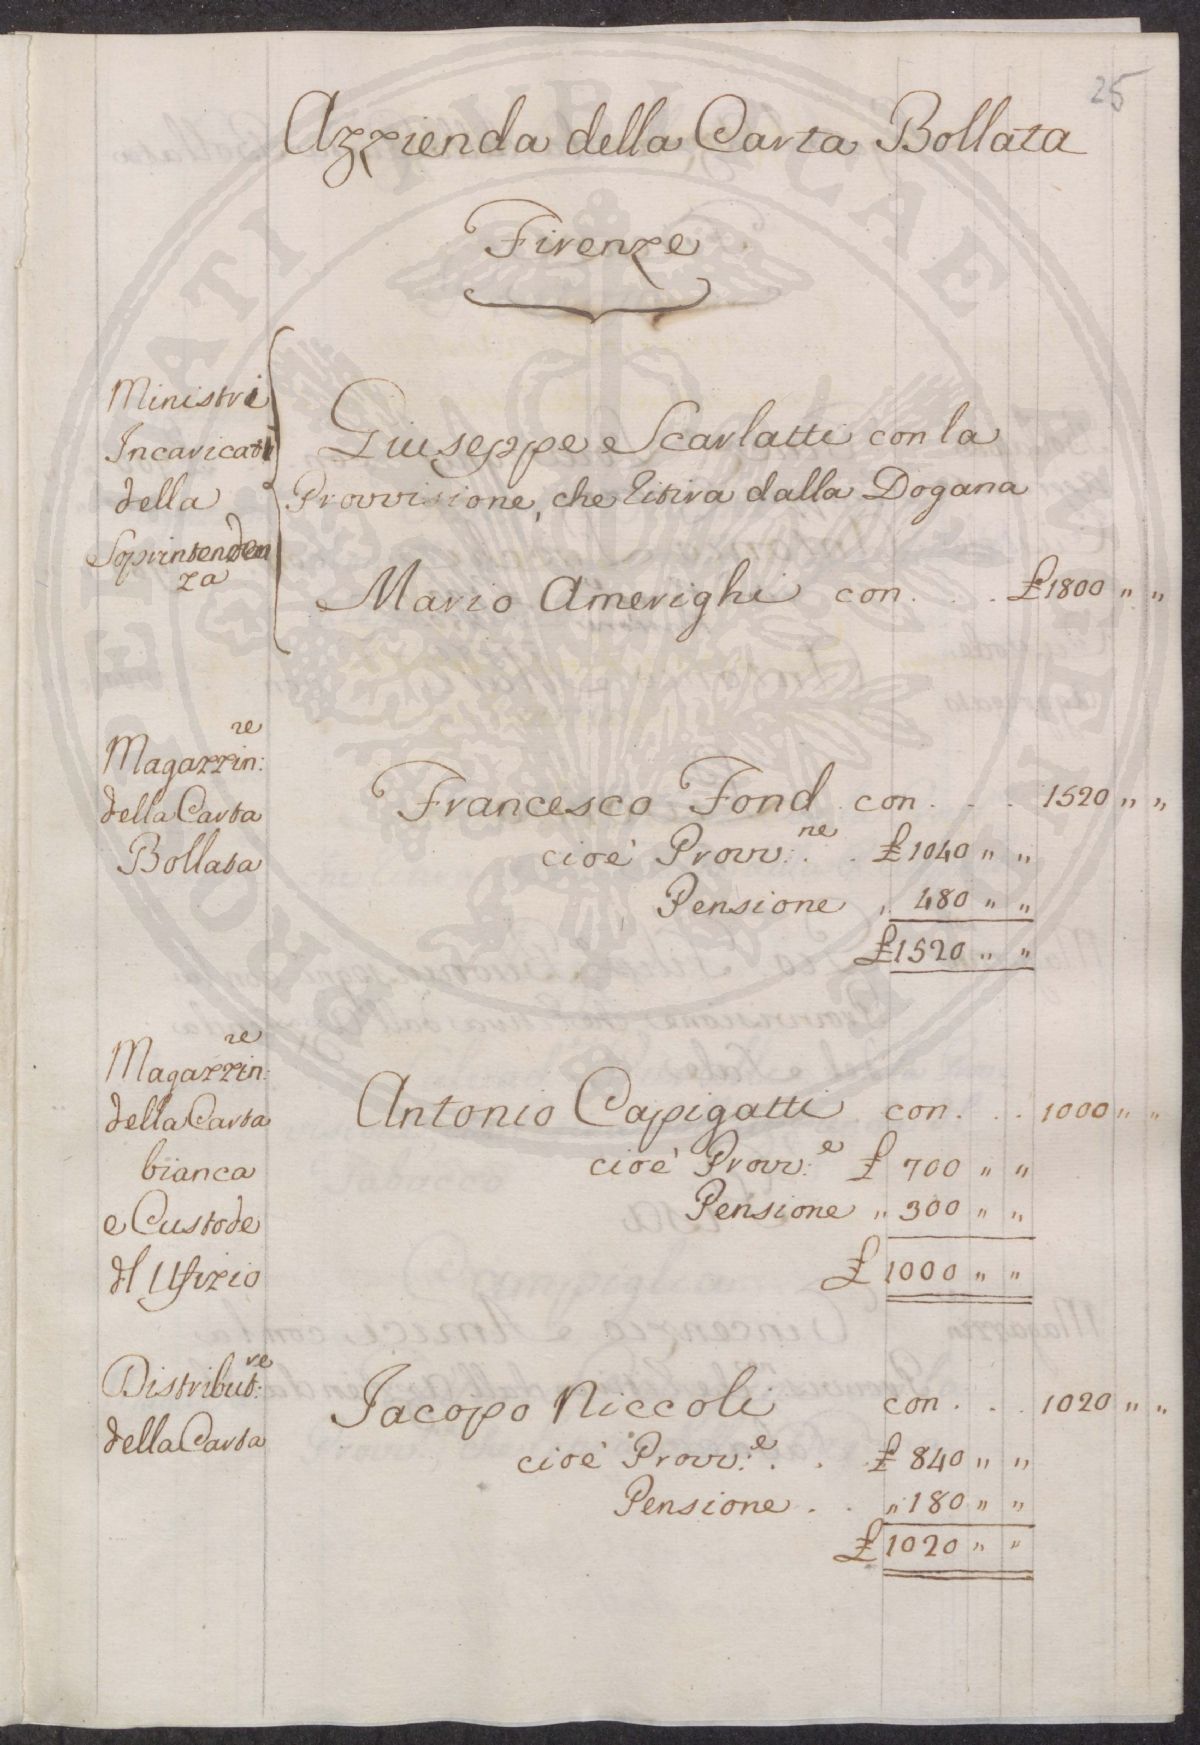 25
Azzienda della Carta Bollata
Firenze
Ministri
Incaricati
della
Soprintenden
za
Giuseppe Scarlatti con la
Provvisione, che ritira dalla Dogana
Mario Amerighi con . . . £ 1800 " "
Magazzin:re
della Carta
Bollata
Francesco Fond con . . . 1520 " "
cioè Provv:ne . . £ 1040 " "
Pensione " 480 " "
£ 1520 " "
Magazzin:re
della Carta
bianca
e Custode
dl Ufizio
Antonio Capigatti con . . . 1000 " "
cioè Provv:e £ 700 " "
Pensione " 300 " "
£ 1000 " "
Distribut:re
della Carta
Jacopo Niccoli con . . . 1020 " "
cioè Provv:e . . £ 840 " "
Pensione . . " 180 " "
£ 1020 " "